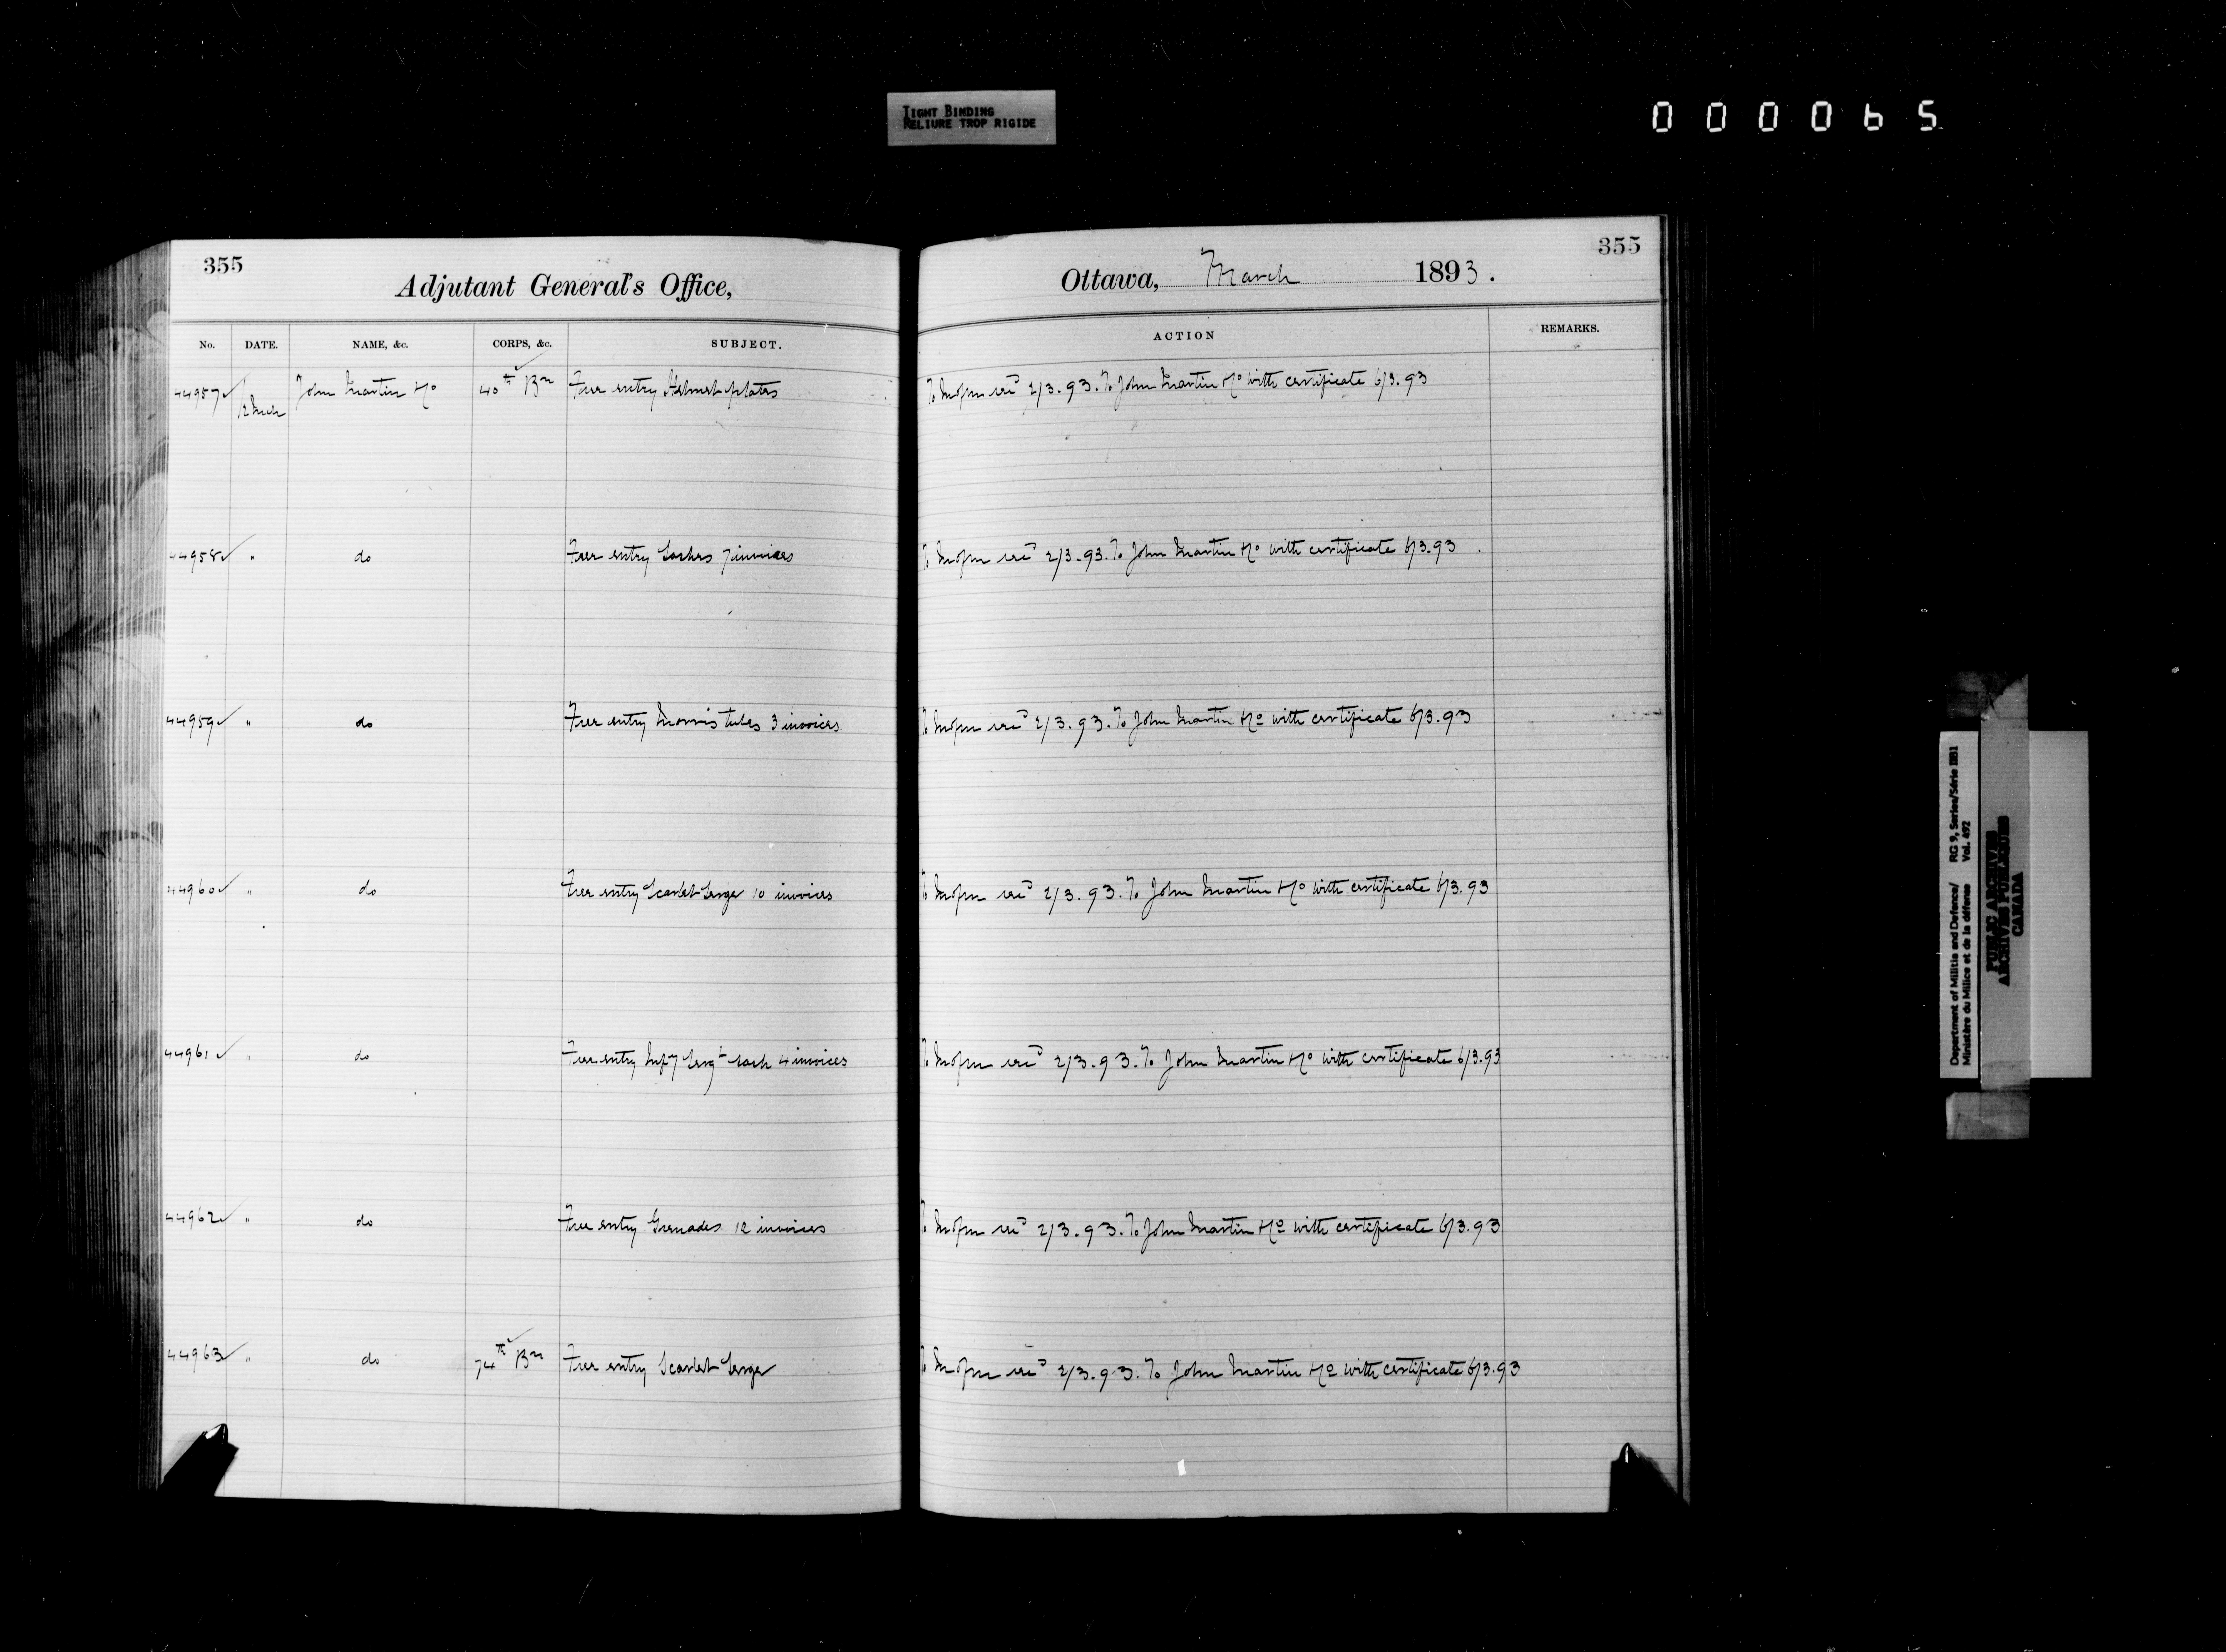 TIGHT BINDING
RELIURE TROP RIGIDE
000065
355
Adjutant General's Office,
No. DATE. NAME, &c. CORPS, &c. SUBJECT.
44957 John Martin Ho 40th Bn Free entry Helmet plates
44958 " do Free entry Sashes 7 invoices
44959 " do Free entry Morris tubes 3 invoices
44960 " do Free entry Scarlet Serge 10 invoices
44961 " do Free entry Infy Sergt sash 4 invoices
44962 " do Free entry Grenades 12 invoices
44963 " do 74th Bn Free entry Scarlet Serge
355
Ottawa, March 1893.
ACTION REMARKS.
2/3.93. To John Martin Ho with certificate 6/3.93
2/3.93. To John Martin Ho with certificate 6/3.93
2/3.93. To John Martin Ho with certificate 6/3.93
2/3.93. To John Martin Ho with certificate 6/3.93
2/3.93. To John Martin Ho with certificate 6/3.93
2/3.93. To John Martin Ho with certificate 6/3.93
2/3.93. To John Martin Ho with certificate 6/3.93
Department of Militia and Defence/ RG 9, Series/Série IIB1
Ministère du Milice et de la défense Vol. 492
PUBLIC ARCHIVES
ARCHIVES PUBLIQUES
CANADA